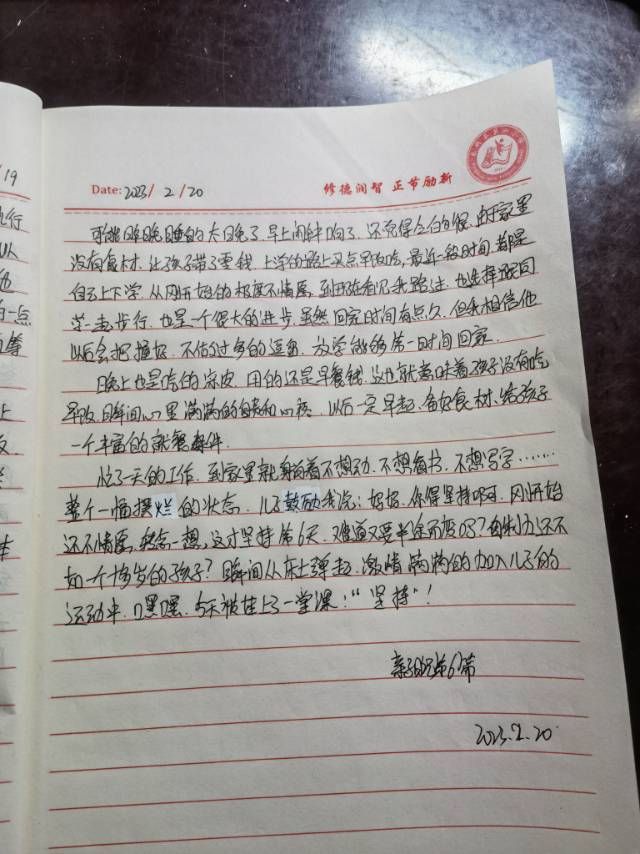 Date: 2023/ 2 / 20
修德润智 正节励新
可能昨晚睡的太晚了, 早上闹钟响了, 还觉得
没有食材, 让孩子带了零钱, 上学的路上买点早饭吃, 最近一段时间, 都是
自己上下学, 从刚开始的极度不情愿, 到现在 也选择跟同
学一起步行, 也是一个很大的进步, 虽然回家时间有点久, 但我相信他
以后会把握好, 不估过多的逗留, 放学能够第一时间回家.
晚上也是吃的凉皮, 用的还是早餐钱, 这也就意味着孩子没有吃
早饭, 瞬间心里满满的自责和心疼, 以后一定早起, 备好食材, 给孩子
一个丰富的就餐条件.
忙了一天的工作, 到家里就躺着不想动, 不想看书, 不想写字……
整个一幅摆烂的状态, 儿子鼓励我说: 妈妈, 你得坚持啊, 刚开始
还不情愿, 转念一想, 这才坚持第6天, 难道又要半途而废吗? 自制力还不
如一个十岁的孩子? 瞬间从床上弹起, 激情满满的加入儿子的
运动中, 嘿嘿, 今天被娃上了一堂课: “坚持”!
2023.2.20
/19